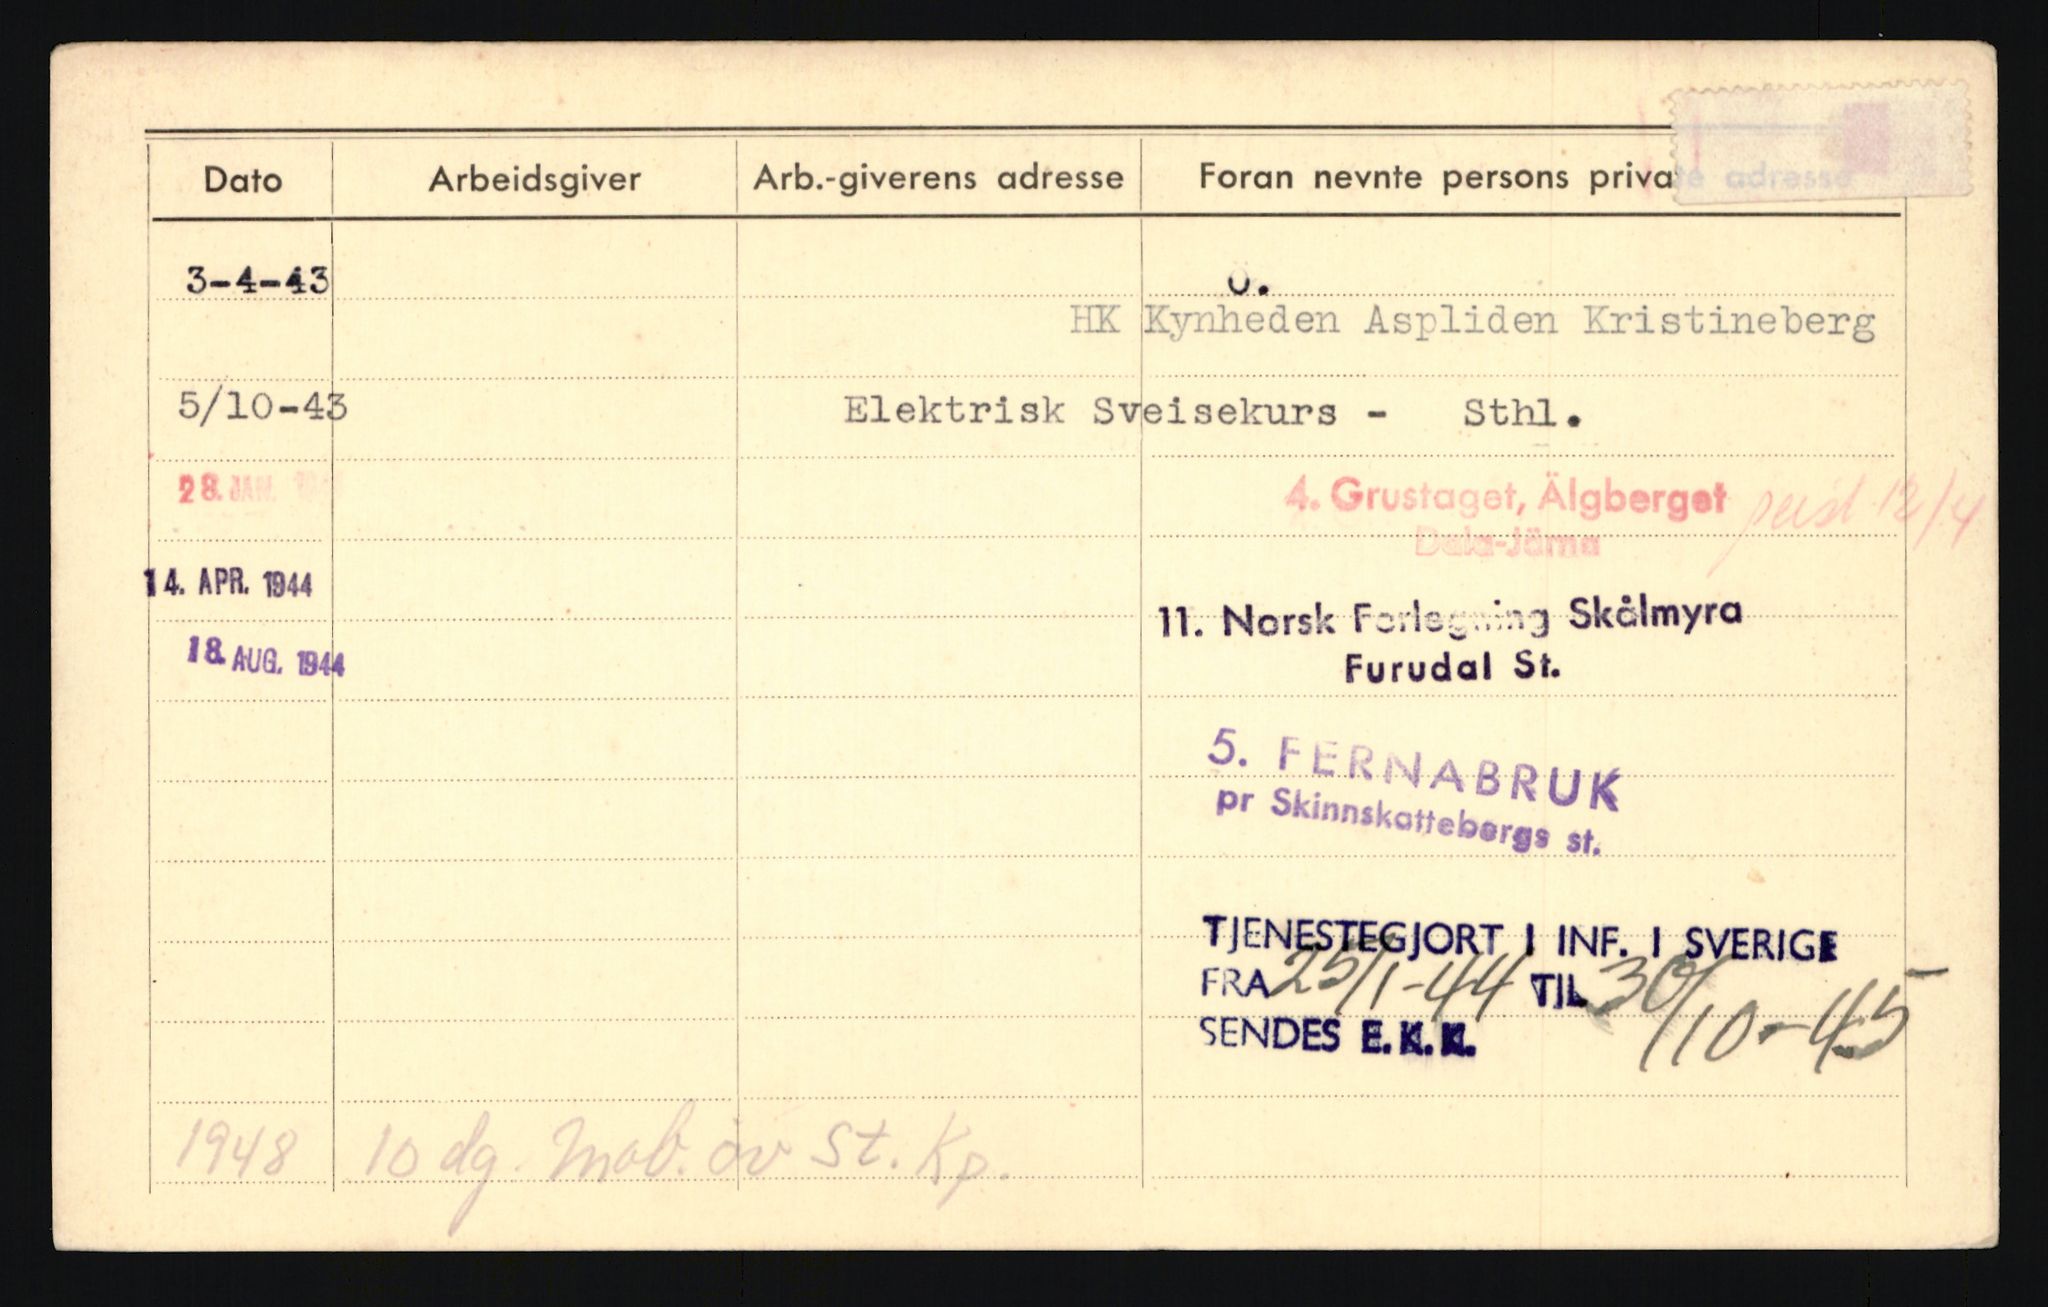 Dato Arbeidsgiver Arb.-giverens adresse Foran nevnte persons private adresse
3-4-43 Ö.
HK Kynheden Aspliden Kristineberg
5/10-43 Elektrisk Sveisekurs - Sthl.
28. JAN. 4. Grustaget, Älgberget
Dala-Järna
14. APR. 1944 11. Norsk Forlegning Skålmyra
18. AUG. 1944 Furudal St.
5. FERNABRUK
pr Skinnskattebergs st.
TJENESTEGJORT I INF. I SVERIGE
FRA 25/1-44 TIL 30/10-45
SENDES E.K.K.
1948 10 dg. Mob. öv St. Kp.